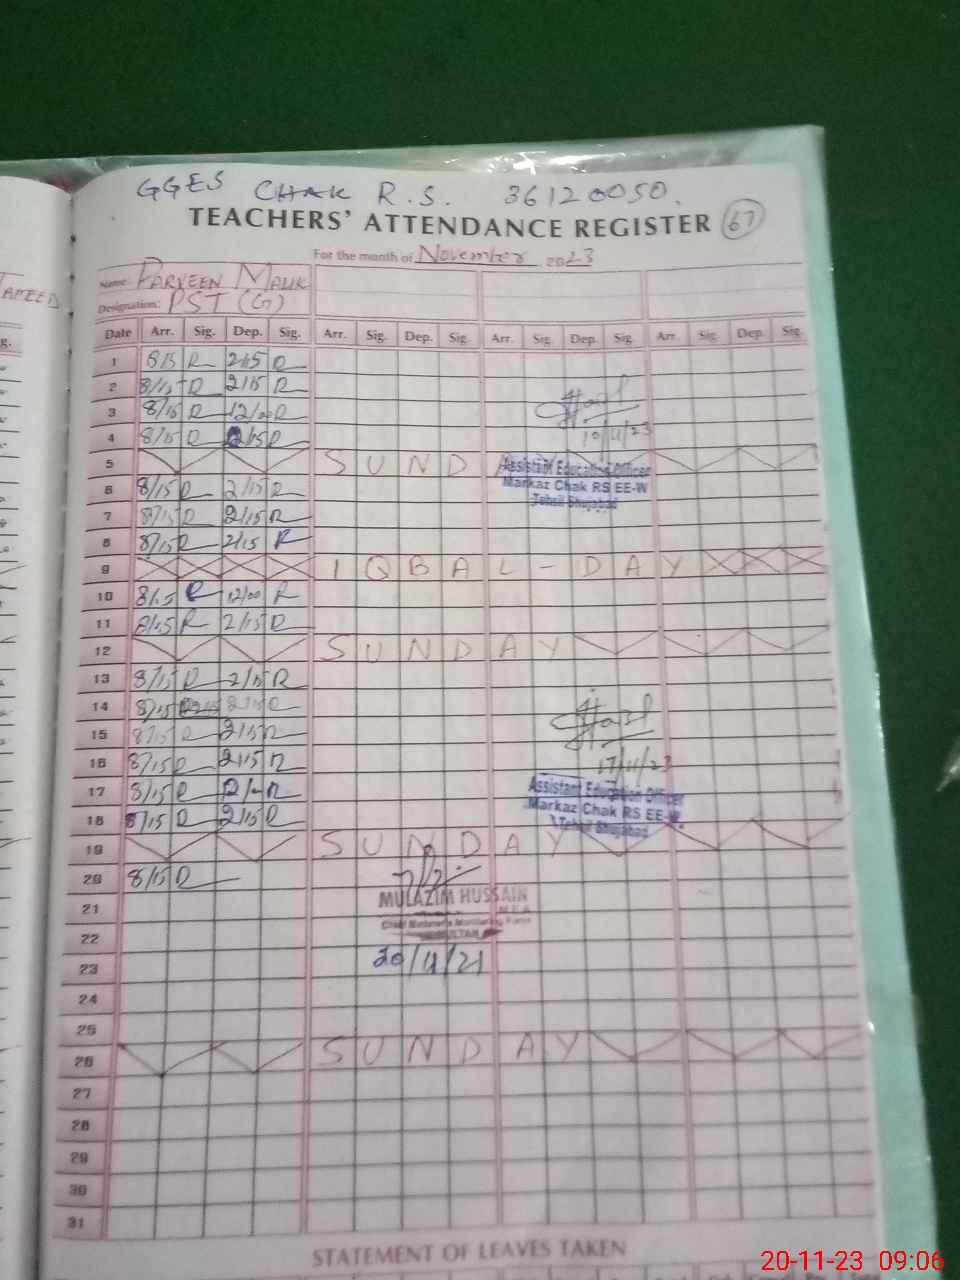 GGES CHAK R.S. 36120050.
TEACHERS' ATTENDANCE REGISTER 67
For the month of November 2023
Name: PARVEEN MALIK
Designation: PST (G)
Date Arr. Sig. Dep. Sig. Arr. Sig. Dep. Sig. Arr. Sig. Dep. Sig. Arr. Sig. Dep. Sig.
1 8/15 R 2/15 R
2 8/15 R 2/15 R
3 8/15 R 12/00 R
10/11/23
4 8/15 R 2/15 R
5 SUND
Assistant Education Officer
Markaz Chak RS EE-W
Tehsil Shujabad
6 8/15 R 2/15 R
7 8/15 R 2/15 R
8 8/15 R 2/15 R
9 IQBAL-DAY
10 8/15 R 12/00 R
11 8/15 R 2/15 R
12 SUNDAY
13 8/15 R 2/15 R
14 8/15 R
15 8/15 R 2/15 R
16 8/15 R 2/15 R
17/11/23
17 8/15 R R
Assistant Education Officer
Markaz Chak RS EE-W
Tehsil Shujabad
18 8/15 R 2/15 R
19 SUNDAY
20 8/15 R
MULAZIM HUSSAIN
21
22
23
20/11/21
24
25
26 SUNDAY
27
28
29
30
31
STATEMENT OF LEAVES TAKEN
20-11-23 09:06